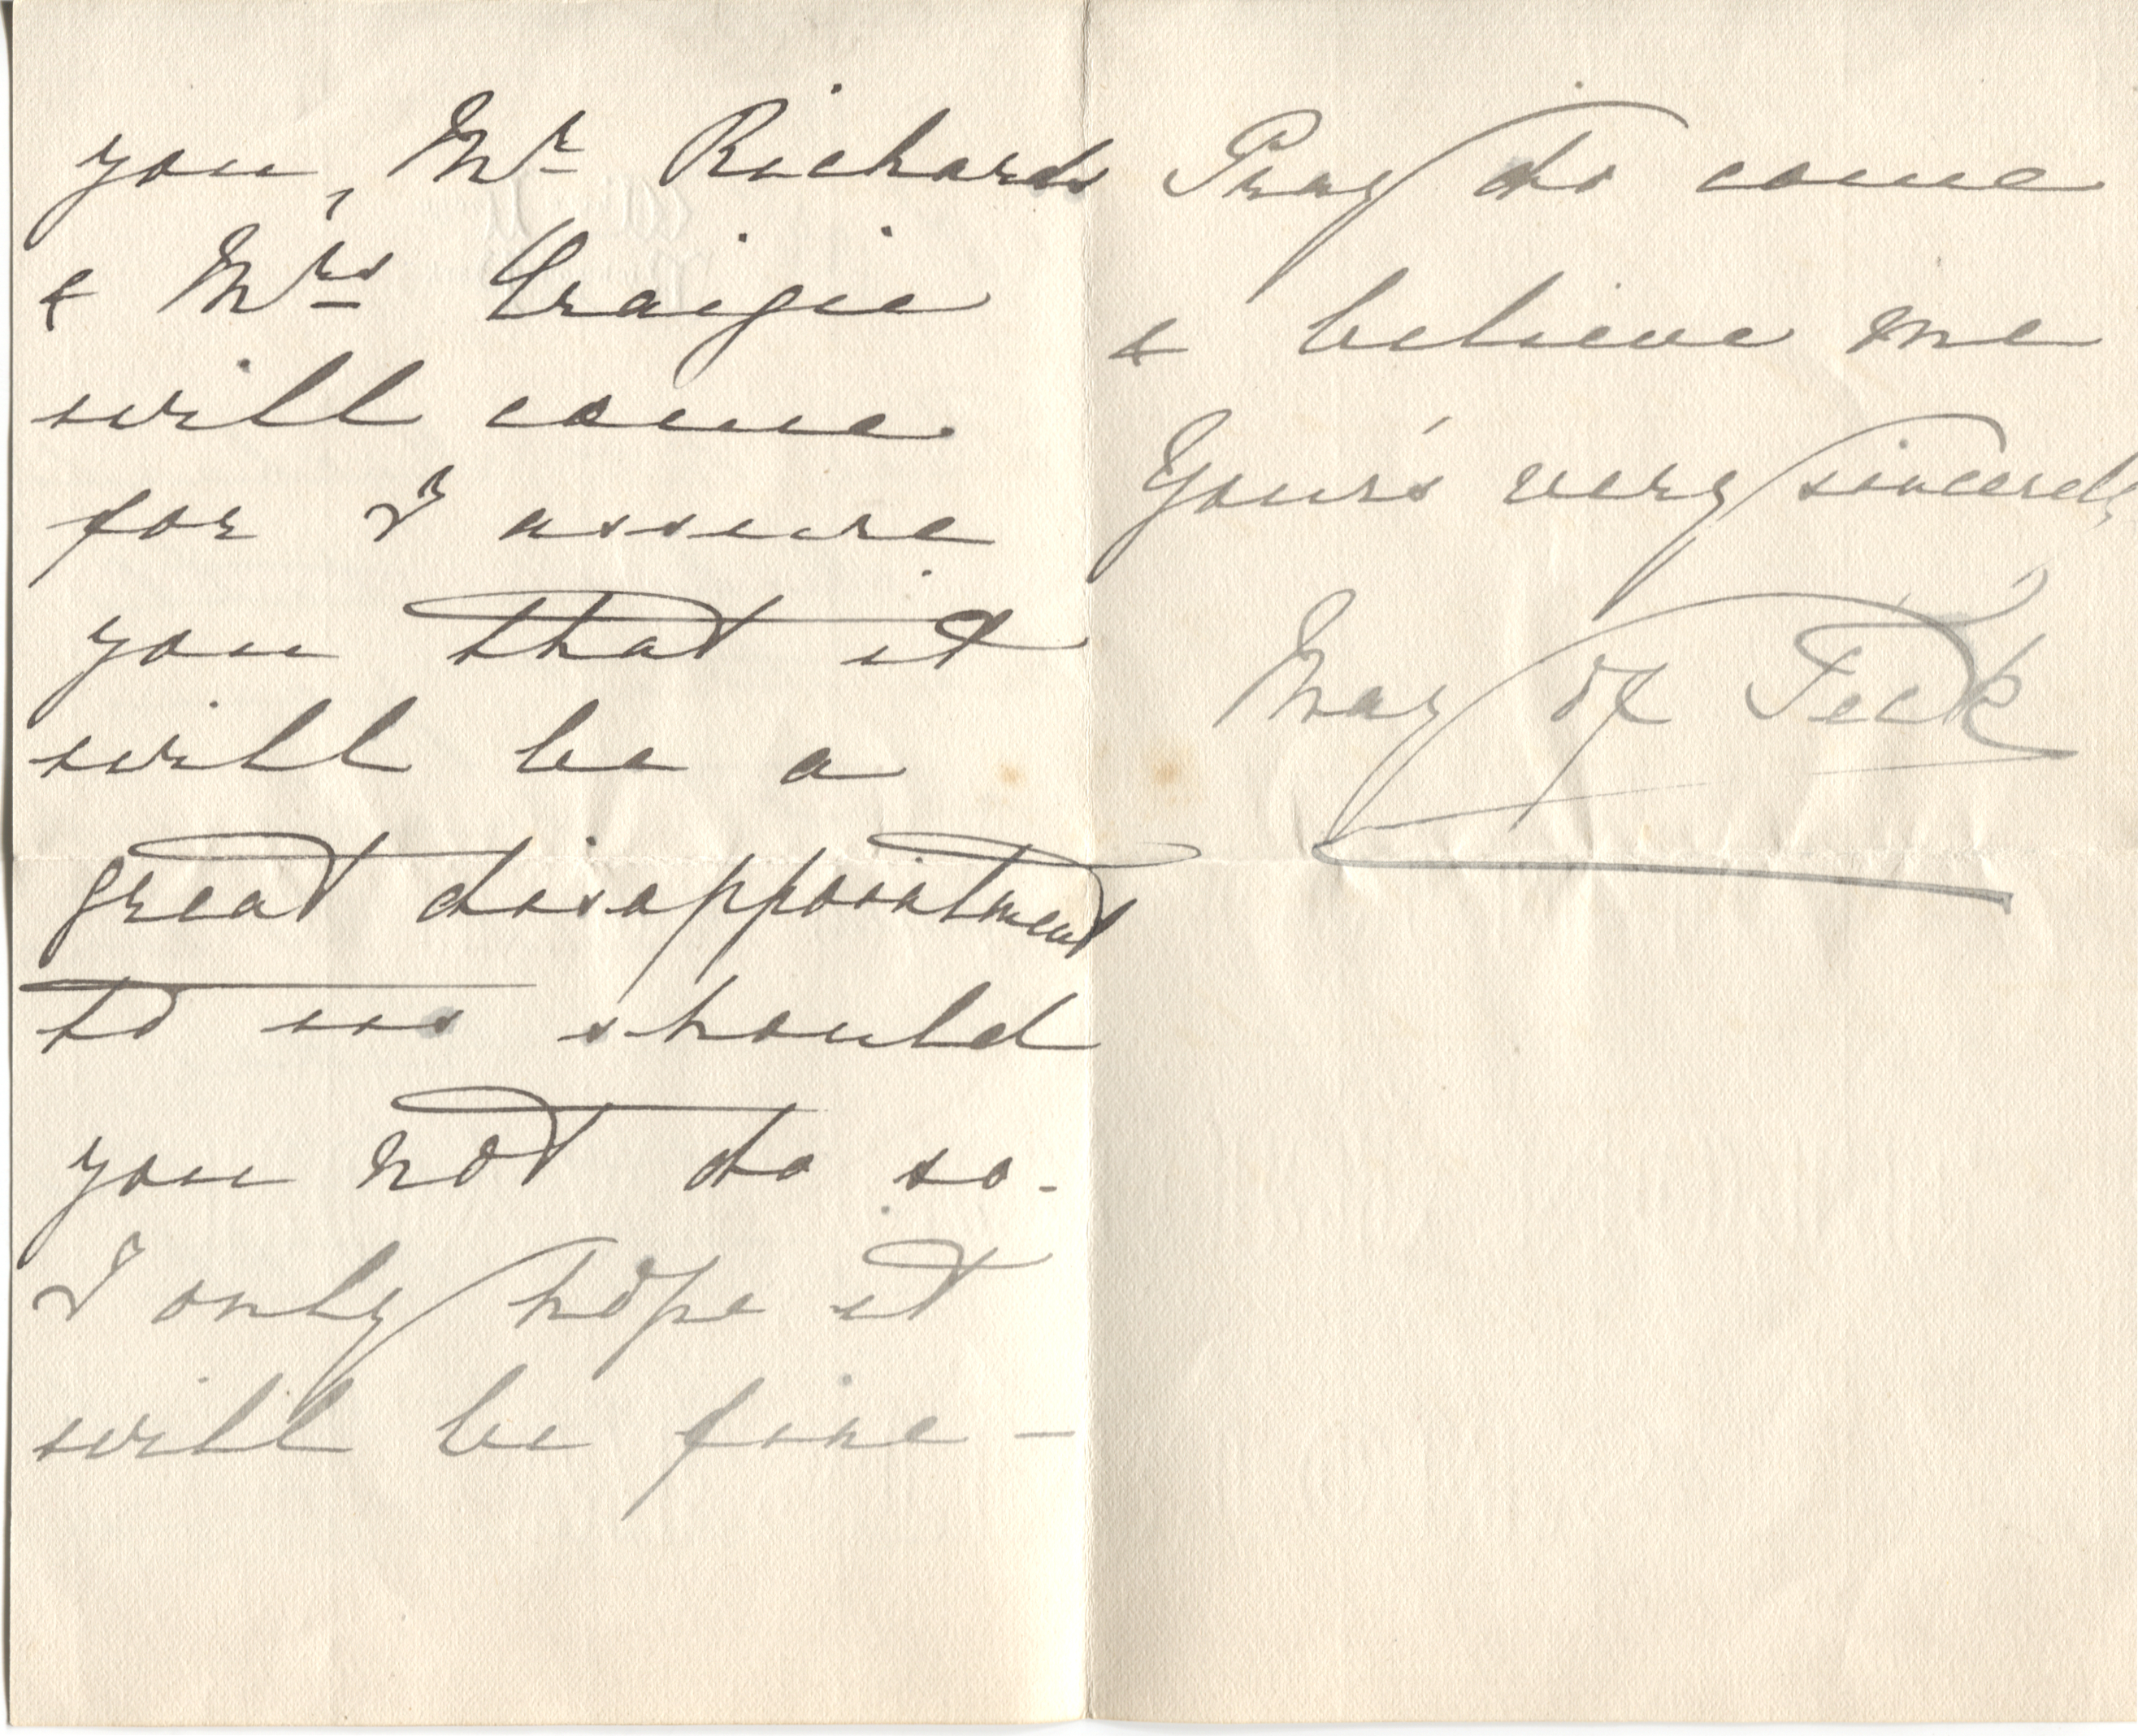 you, Mr Richards
& Mrs Craigie
will come
for I assure
you that it
will be a
great disappointment
to us should
you not do so.
I only hope it
will be fine –
Pray do come
& believe me
Your's very sincerely
May of Teck